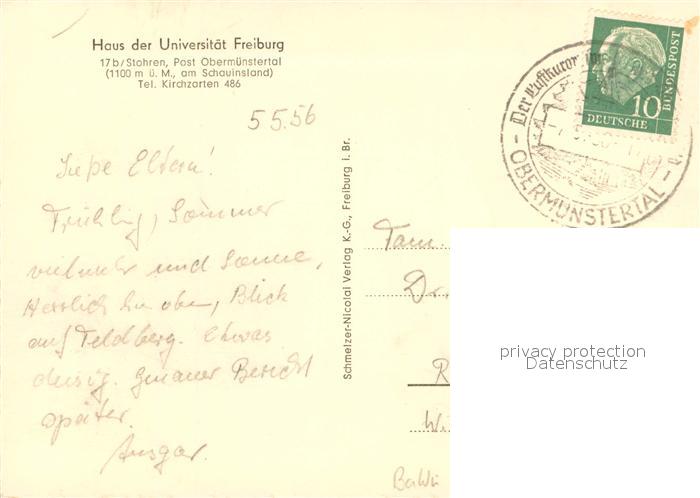 Haus der Universität Freiburg
17b/Stohren, Post Obermünstertal
(1100 m ü. M., am Schauinsland)
Tel. Kirchzarten 486
5.5.56
Liebe Eltern!
Frühling, Sommer
vielmehr und Sonne,
Herrlich hier oben, Blick
auf Feldberg. Etwas
diesig. Genauer Bericht
später.
Ansgar.
Schmelzer-Nicolai Verlag K.-G., Freiburg i. Br.
Der Luftkurort im
OBERMÜNSTERTAL
10
DEUTSCHE
BUNDESPOST
Fam.
Dr.
R
Wi
privacy protection
Datenschutz